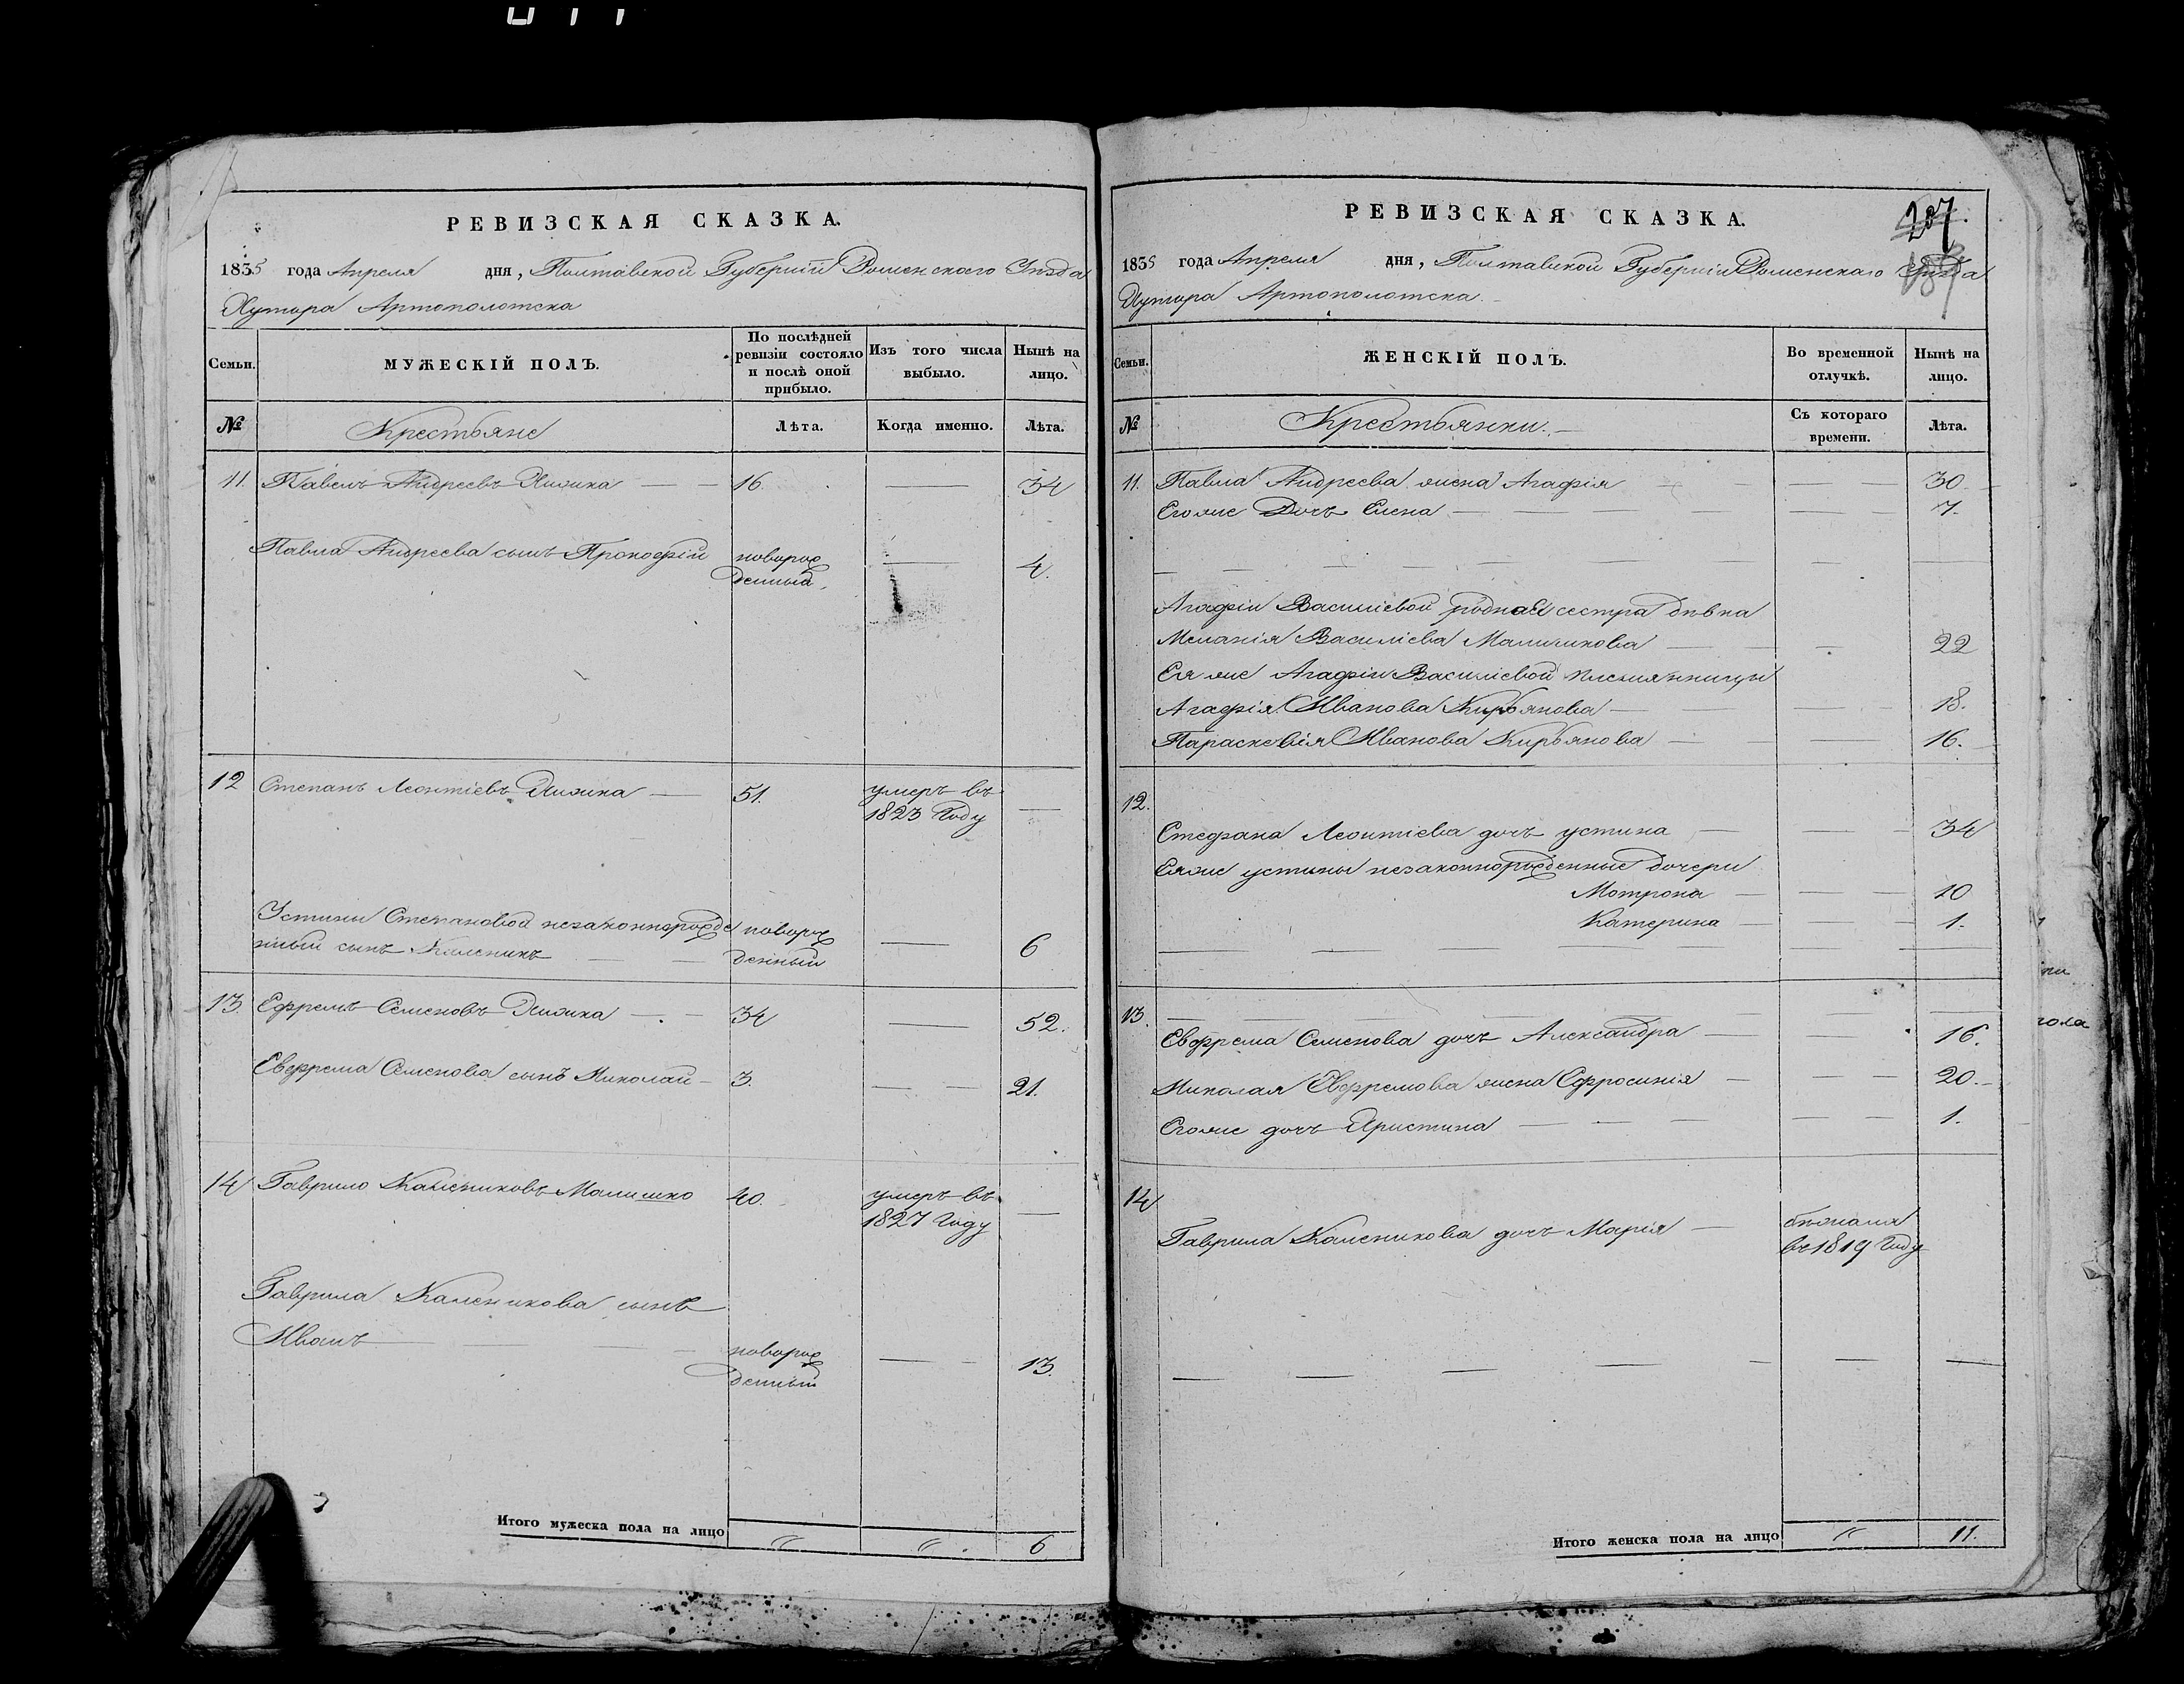 РЕВИЗСКАЯ СКАЗКА.
1835 года Апреля дня, Полтавской Губернiи Роменского Уѣзда
Хутора Артополотска
Семьи. МУЖЕСКІЙ ПОЛЪ. По послѣдней ревизіи состояло и послѣ оной прибыло. Изъ того числа выбыло. Нынѣ на лицо.
№ Крестьяне Лѣта. Когда именно. Лѣта.
11. Павелъ Андреевъ 16. — 34
Павла Андреева сынъ Прокофій новорож
денный — 4.
12 Степанъ Леонтіевъ 51. умеръ въ —
1823 Году
Устины Степановой незаконнорожде новорож
нный сынъ Каленикъ денный — 6
13. Ефремъ Семеновъ 34 — 52.
Евфрема Семенова сынъ Николай 3. — 21.
14 Гаврило Калениковъ Малишко 40. умеръ въ —
1827 Году
Гаврила Каленикова сынъ
Иванъ новорож
денный — 13.
Итого мужеска пола на лицо " " 6
РЕВИЗСКАЯ СКАЗКА.
207.
1835 года Апреля дня, Полтавской Губерніи Роменскаго Уѣзда
Хутора Артополотска
Семьи. ЖЕНСКІЙ ПОЛЪ. Во временной отлучкѣ. Нынѣ на лицо.
№ Крестьянки. Съ котораго времени. Лѣта.
11. Павла Андреева жена Агафія — 30.
Егоже Дочь Елена — 7.
Агафіи Василіевой родная сестра дѣвка
Меланія Василіева — 22
Ея же Агафіи Василіевой племянницы
Агафія Иванова Кирьянова — 18.
Параскевія Иванова Кирьянова — 16.
12.
Стефана Леонтіева дочь устина — 34
Еяже устины незаконнорожденные дочери
Мотрона — 10
Катерина — 1.
13.
Евфрема Семенова дочь Александра — 16.
Николая Евфремова жена Ефросинія — 20.
Егоже дочь Христина — 1.
14
Гаврила Каленикова дочь Марія — бѣжала
въ 1819 Году
Итого женска пола на лицо " 11.